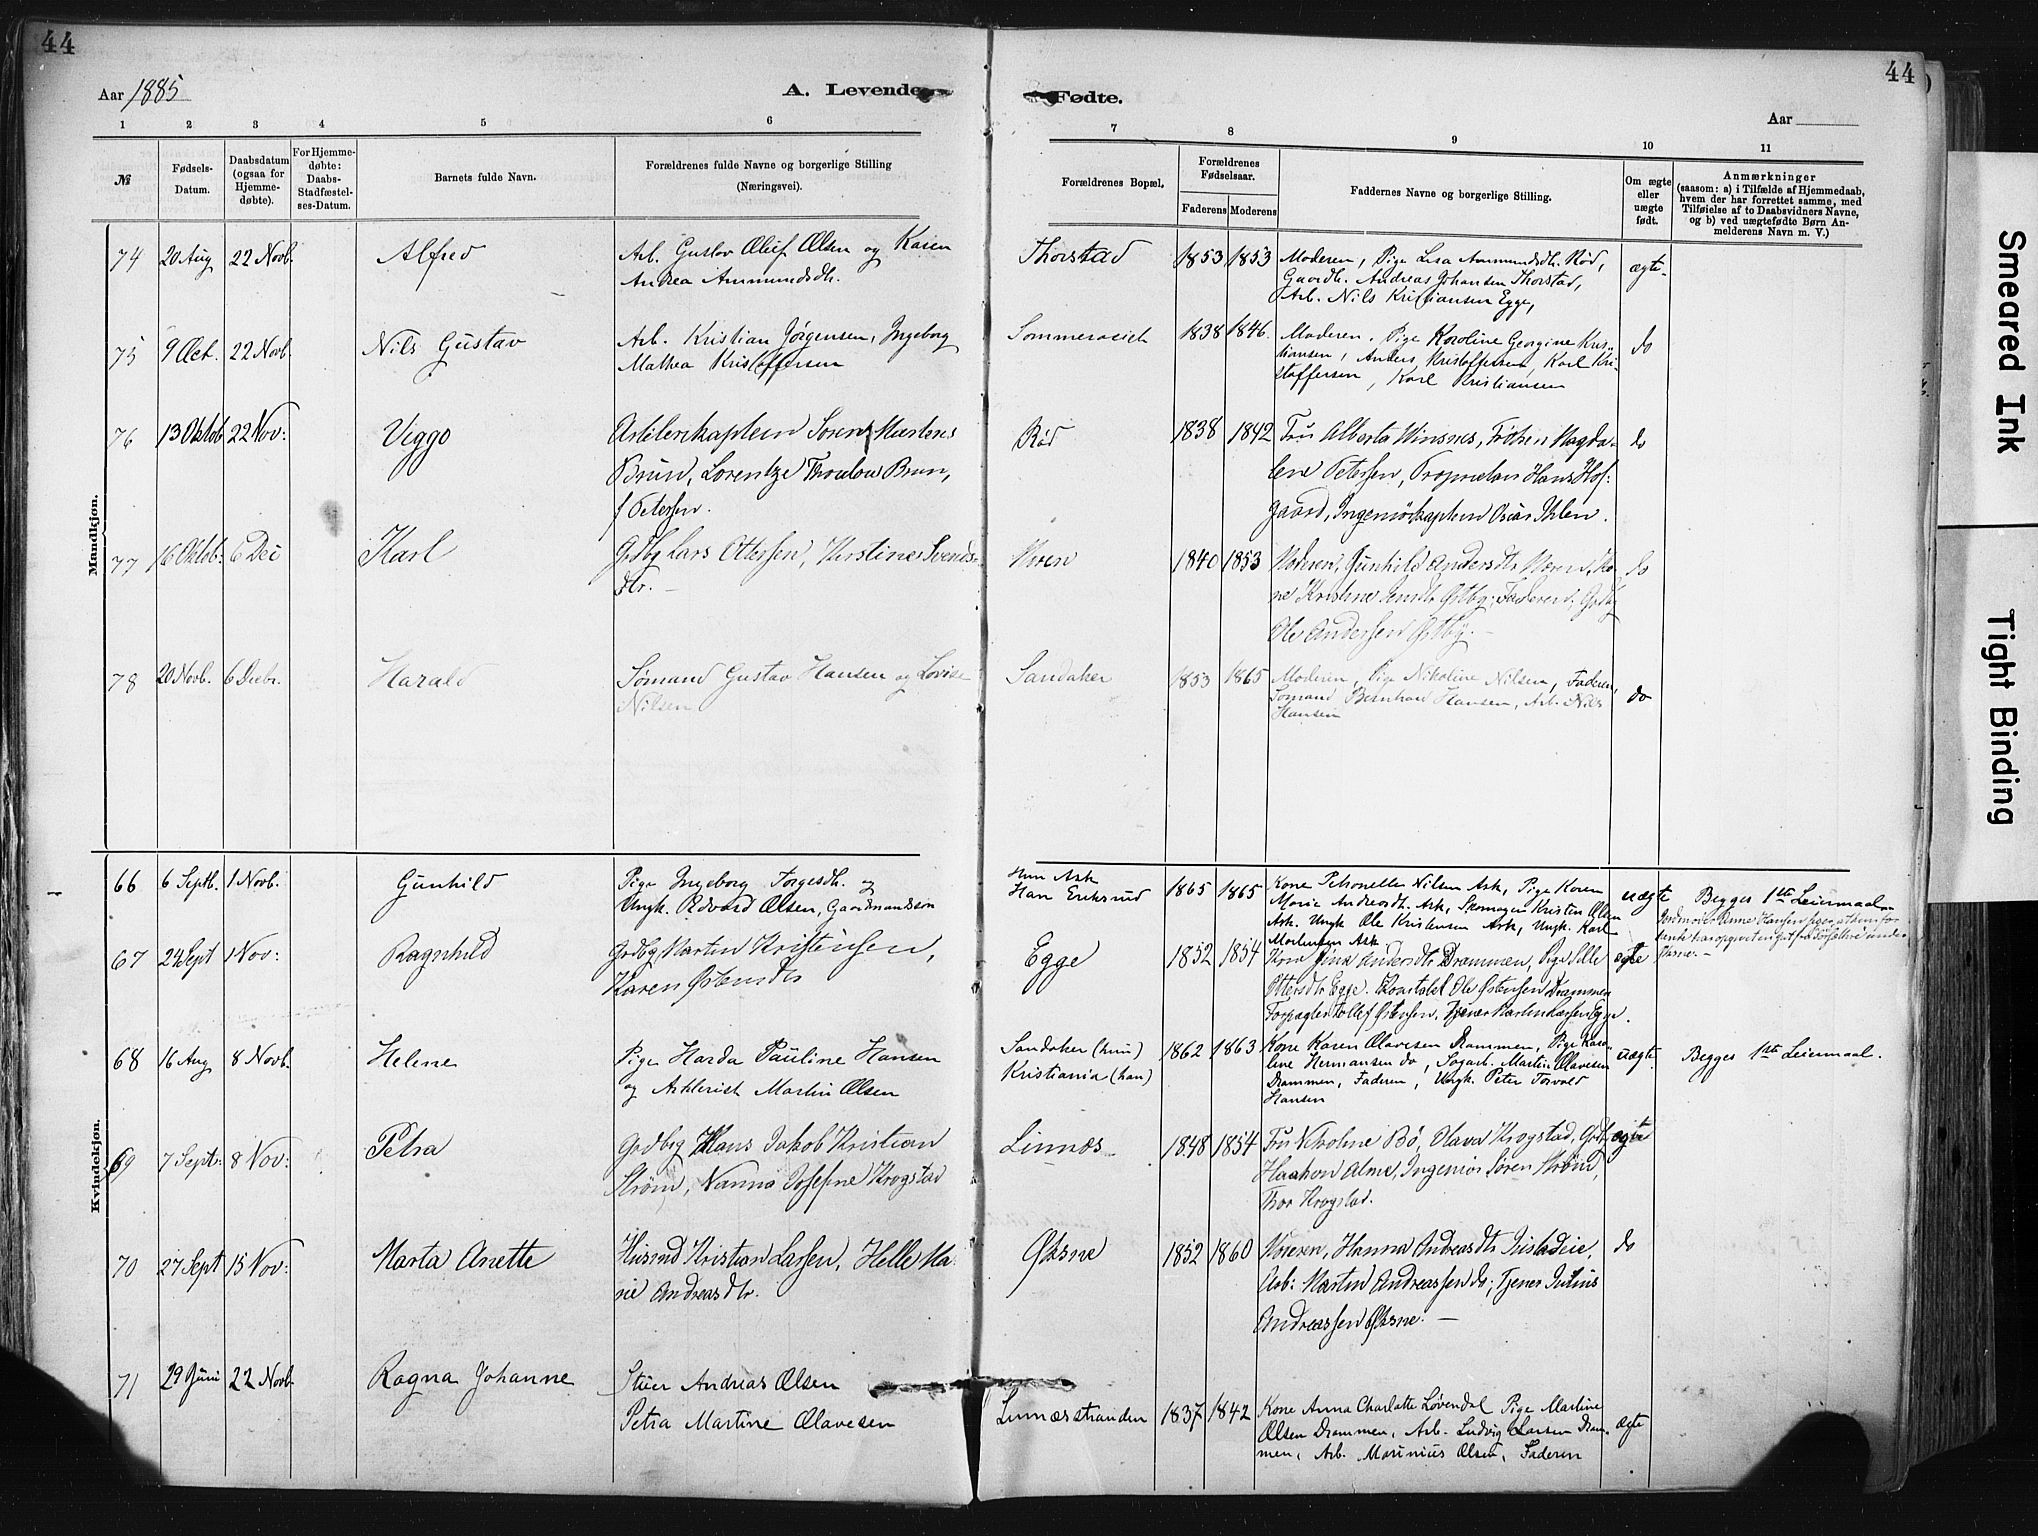 44
44
Aar 1885
A. Levende
Fødte.
Aar
1 2 3 4 5 6
7 8 9 10 11
№
Fødsels-
Datum.
Daabsdatum
(ogsaa for
Hjemme-
døbte).
For Hjemme-
døbte:
Daabs-
Stadfæstel-
ses-Datum.
Barnets fulde Navn.
Forældrenes fulde Navne og borgerlige Stilling
(Næringsvei).
Forældrenes Bopæl.
Forældrenes
Fødselsaar.
Faderens Moderens
Faddernes Navne og borgerlige Stilling.
Om ægte
eller
uægte
født.
Anmærkninger
(saasom: a) i Tilfælde af Hjemmedaab,
hvem der har forrettet samme, med
Tilføielse af to Daabsvidners Navne,
og b) ved uægtefødte Børn An-
melderens Navn m. V.)
Mandkjøn.
74 20 Aug 22 Novb. Alfred
Arb. Gustav Oluf Olsen og Karen
Andrea Ammundsdtr.
Thorstad 1853 1853
Moderen, Pige Lisa Ammundsdtr. Rød,
Gaardb. Andreas Johansen Thorstad,
Arb. Nils Kristiansen Egge,
ægte.
75 9 Oct. 22 Novb. Nils Gustav
Arb. Kristian Jørgensen, Ingeborg
Mathea Kristoffersen
1838 1846.
Moderen, Pige Karoline Georgine Kris-
tiansen, Anders Kristoffersen, Karl Kri-
stoffersen, Karl Kristiansen
do
76 13 Oktob 22 Nov: Viggo
Artilerikaptein Sørens Martens
Brun, Lorentze Thoulow Brun,
f Petersen.
Rød 1838 1842
Fru Alberta Winsnes, Frøken Magda-
lene Petersen, Proprietær Hans Hof-
gaard, Ingeniørkaptein Oscar Ihlen.
do
77 16 Oktob. 6 Dec Karl
Gdbg Lars Ottersen, Kirstine Svends-
dtr.
Meren 1840 1853
Moderen, Gunhild Andersdtr Meren, Ko-
ne Kristine Jensdtr Østby; Faderen, Grdbg
Ole Andersen Østby.
do
78 20 Novb. 6 Decbr. Harald
Sømand Gustav Hansen og Lovise
Nilsen
Sandaker 1853 1865
Moderen, Pige Nikoline Nilsen, Faderen,
Sømand Bernhard Hansen, Arb. Nils
Hansen
do
Kvindekjøn.
66 6 Septb. 1 Novb. Gunhild
Pige Ingeborg Torgesdtr. og
Ungk. Edvard Olsen, Gaardmandssøn
Hun Ask
Han Eriksrud
1865 1865
Kone Petronelle Nilsen Ask, Pige Karen
Marie Andreasdtr. Ask, Skomager Kristen Olsen
Ask. Ungk. Ole Kristensen Ask, Ungk. Karl
Mortensen Ask.
uægte
Begges 1ste Leiermaal.
67 24 Sept 1 Nov: Ragnhild
Grdbg Martin Kristensen,
Karen Østensdtr
Egge 1852 1854
Kone Jina Andersdtr Drammen, Pige Sille
Ottersdtr Egge. Konstabel Ole Østensen Drammen
Forpagter Tollef Østensen. Tjener Martin Larsen Egge.
ægte
68 16 Aug 8 Novb. Helene
Pige Harda Pauline Hansen
og Artilerist Martin Olsen
Sandaker (hun)
Kristiania (han)
1862 1863
Kone Karen Olavesen Drammen, Pige Karo-
line Hermansen do, Sagarb. Martin Olavesen
Drammen, Faderen, Ungk. Peter Torvald
Hansen
uægte.
Begges 1ste Leiermaal.
69 7 Sept: 8 Nov: Petra
Grdbg Hans Jakob Kristian
Strøm, Nanna Josefine Krogstad
Linnæs 1848 1854
Fru Nikoline Bø, Olava Krogstad, Grdb
Haakon Alme, Ingeniør Søren Strøm,
Thor Krogstad.
ægte
70 27 Sept 15 Nov: Marta Anette
Husmd Kristian Larsen, Helle Ma-
rie Andreasdtr.
Øksne 1852 1860
Moderen, Hanna Andreasdtr
Arb: Martin Andreassen do; Tjener Julius
Andreassen Øksne.
do
71 29 Juni 22 Novb. Ragna Johanne
Stuer Andreas Olsen
Petra Martine Olavesen
Linnæsstranden 1837 1842
Kone Anna Charlotte Løvendal Pige Martine
Olsen Drammen, Arb. Ludvig Larsen Dram-
men, Arb. Marinius Olsen, Faderen
ægte
Smeared Ink
Tight Binding